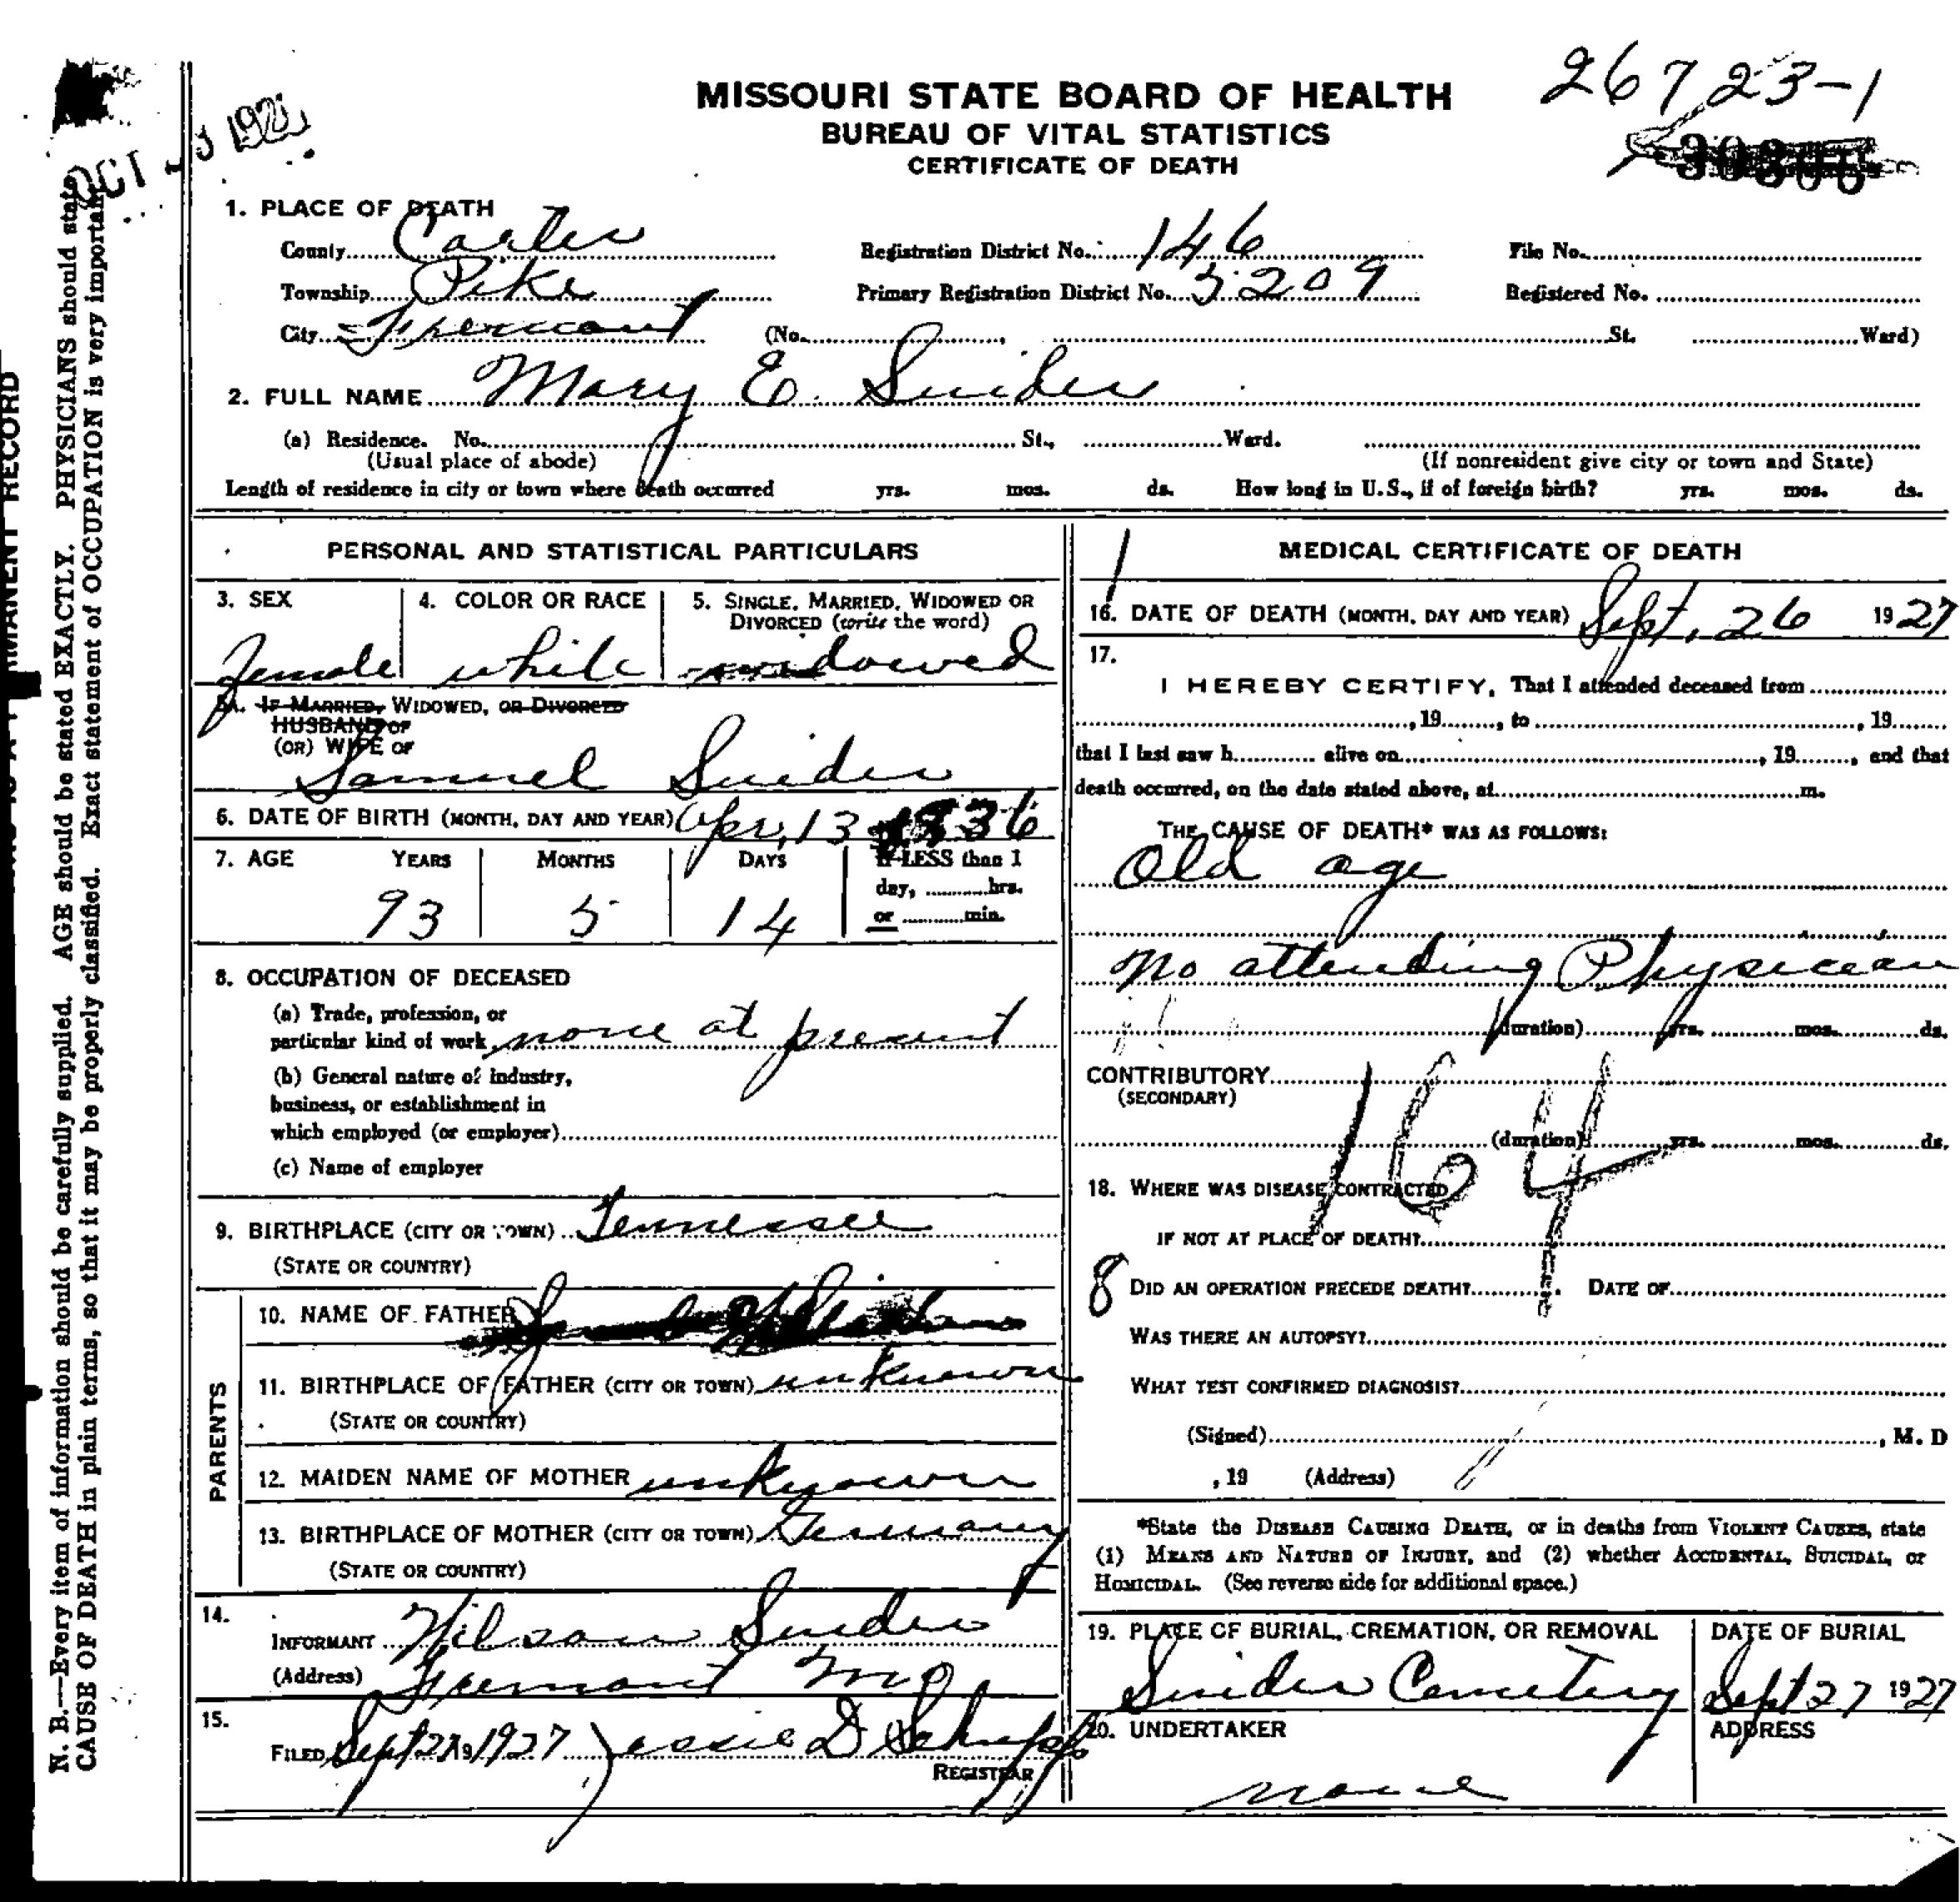 26723-1
MISSOURI STATE BOARD OF HEALTH
BUREAU OF VITAL STATISTICS
CERTIFICATE OF DEATH
OCT
1. PLACE OF DEATH
County Carter Registration District No. 146 File No.
Township Pike Primary Registration District No. 5209 Registered No.
City Fremont (No. , St. Ward)
2. FULL NAME Mary E. Snider
(a) Residence. No. St., Ward.
(Usual place of abode) (If nonresident give city or town and State)
Length of residence in city or town where death occurred yrs. mos. ds. How long in U.S., if of foreign birth? yrs. mos. ds.
PERSONAL AND STATISTICAL PARTICULARS
3. SEX 4. COLOR OR RACE 5. SINGLE, MARRIED, WIDOWED OR
DIVORCED (write the word)
Female white widowed
5A. IF MARRIED, WIDOWED, OR DIVORCED
HUSBAND OF
(OR) WIFE OF
Samuel Snider
6. DATE OF BIRTH (MONTH, DAY AND YEAR) Apr, 13 1836
7. AGE YEARS MONTHS DAYS If LESS than 1
day, hrs.
or min.
93 5 14
8. OCCUPATION OF DECEASED
(a) Trade, profession, or
particular kind of work none at present
(b) General nature of industry,
business, or establishment in
which employed (or employer)
(c) Name of employer
9. BIRTHPLACE (CITY OR TOWN) Tennessee
(STATE OR COUNTRY)
PARENTS
10. NAME OF FATHER
11. BIRTHPLACE OF FATHER (CITY OR TOWN) unknown
(STATE OR COUNTRY)
12. MAIDEN NAME OF MOTHER unknown
13. BIRTHPLACE OF MOTHER (CITY OR TOWN) Germany
(STATE OR COUNTRY)
14.
INFORMANT Wilson Snider
(Address) Fremont Mo
15.
FILED Sept 27 19 1927 Jessie D
REGISTRAR
MEDICAL CERTIFICATE OF DEATH
16. DATE OF DEATH (MONTH, DAY AND YEAR) Sept, 26 1927
17.
I HEREBY CERTIFY, That I attended deceased from
, 19 , to , 19
that I last saw h alive on , 19 , and that
death occurred, on the date stated above, at m.
THE CAUSE OF DEATH* WAS AS FOLLOWS:
Old age
no attending Physician
(duration) yrs. mos. ds.
CONTRIBUTORY
(SECONDARY)
164
(duration) yrs. mos. ds.
18. WHERE WAS DISEASE CONTRACTED
IF NOT AT PLACE OF DEATH?
8 DID AN OPERATION PRECEDE DEATH? DATE OF
WAS THERE AN AUTOPSY?
WHAT TEST CONFIRMED DIAGNOSIS?
(Signed) , M. D
, 19 (Address)
*State the DISEASE CAUSING DEATH, or in deaths from VIOLENT CAUSES, state
(1) MEANS AND NATURE OF INJURY, and (2) whether ACCIDENTAL, SUICIDAL, or
HOMICIDAL. (See reverse side for additional space.)
19. PLACE OF BURIAL, CREMATION, OR REMOVAL DATE OF BURIAL
Snider Cemetery Sept 27 1927
20. UNDERTAKER ADDRESS
none
N. B.—Every item of information should be carefully supplied. AGE should be stated EXACTLY. PHYSICIANS should state
CAUSE OF DEATH in plain terms, so that it may be properly classified. Exact statement of OCCUPATION is very important.
RECORD